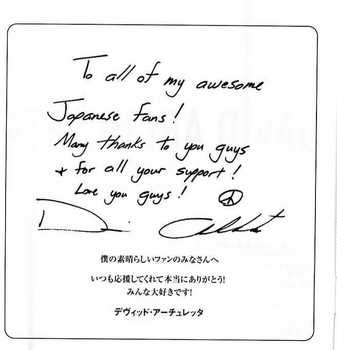 To all of my awesome
Japanese fans!
Many thanks to you guys
+ for all your support!
Love you guys!
僕の素晴らしいファンのみなさんへ
いつも応援してくれて本当にありがとう!
みんな大好きです!
デヴィッド・アーチュレッタ